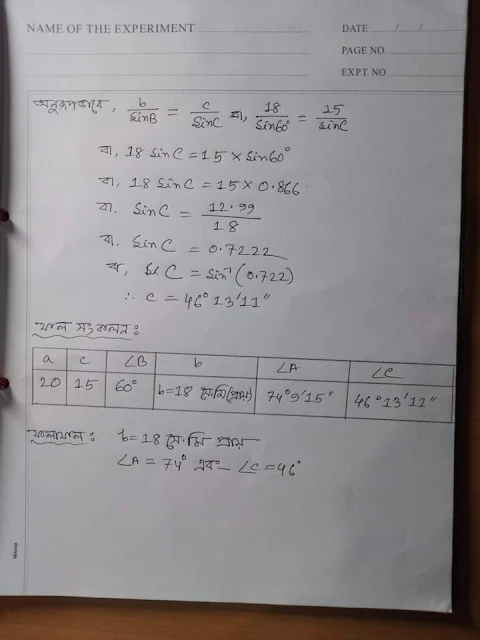 NAME OF THE EXPERIMENT
DATE / /
PAGE NO
EXPT NO
অনুরূপভাবে, b/sinB = c/sinC বা, 18/sin60° = 15/sinC
বা, 18 sinC = 15 × sin60°
বা, 18 sinC = 15 × 0.866
বা, sinC = 12.99/18
বা, sinC = 0.7222
বা, C = sin⁻¹(0.722)
∴ C = 46° 13′ 11″
ফল সংকলন :
a c ∠B b ∠A ∠C
20 15 60° b=18 সে.মি(প্রায়) 74°9′15″ 46°13′11″
ফলাফল : b=18 সে.মি প্রায়
∠A = 74° এবং ∠C = 46°